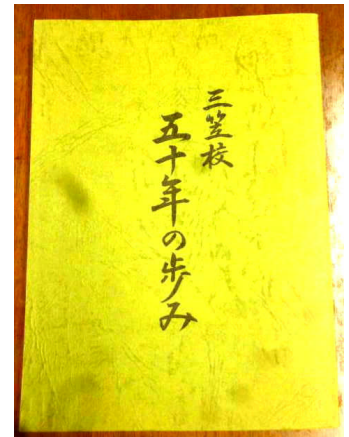 三笠校
五十年の歩み